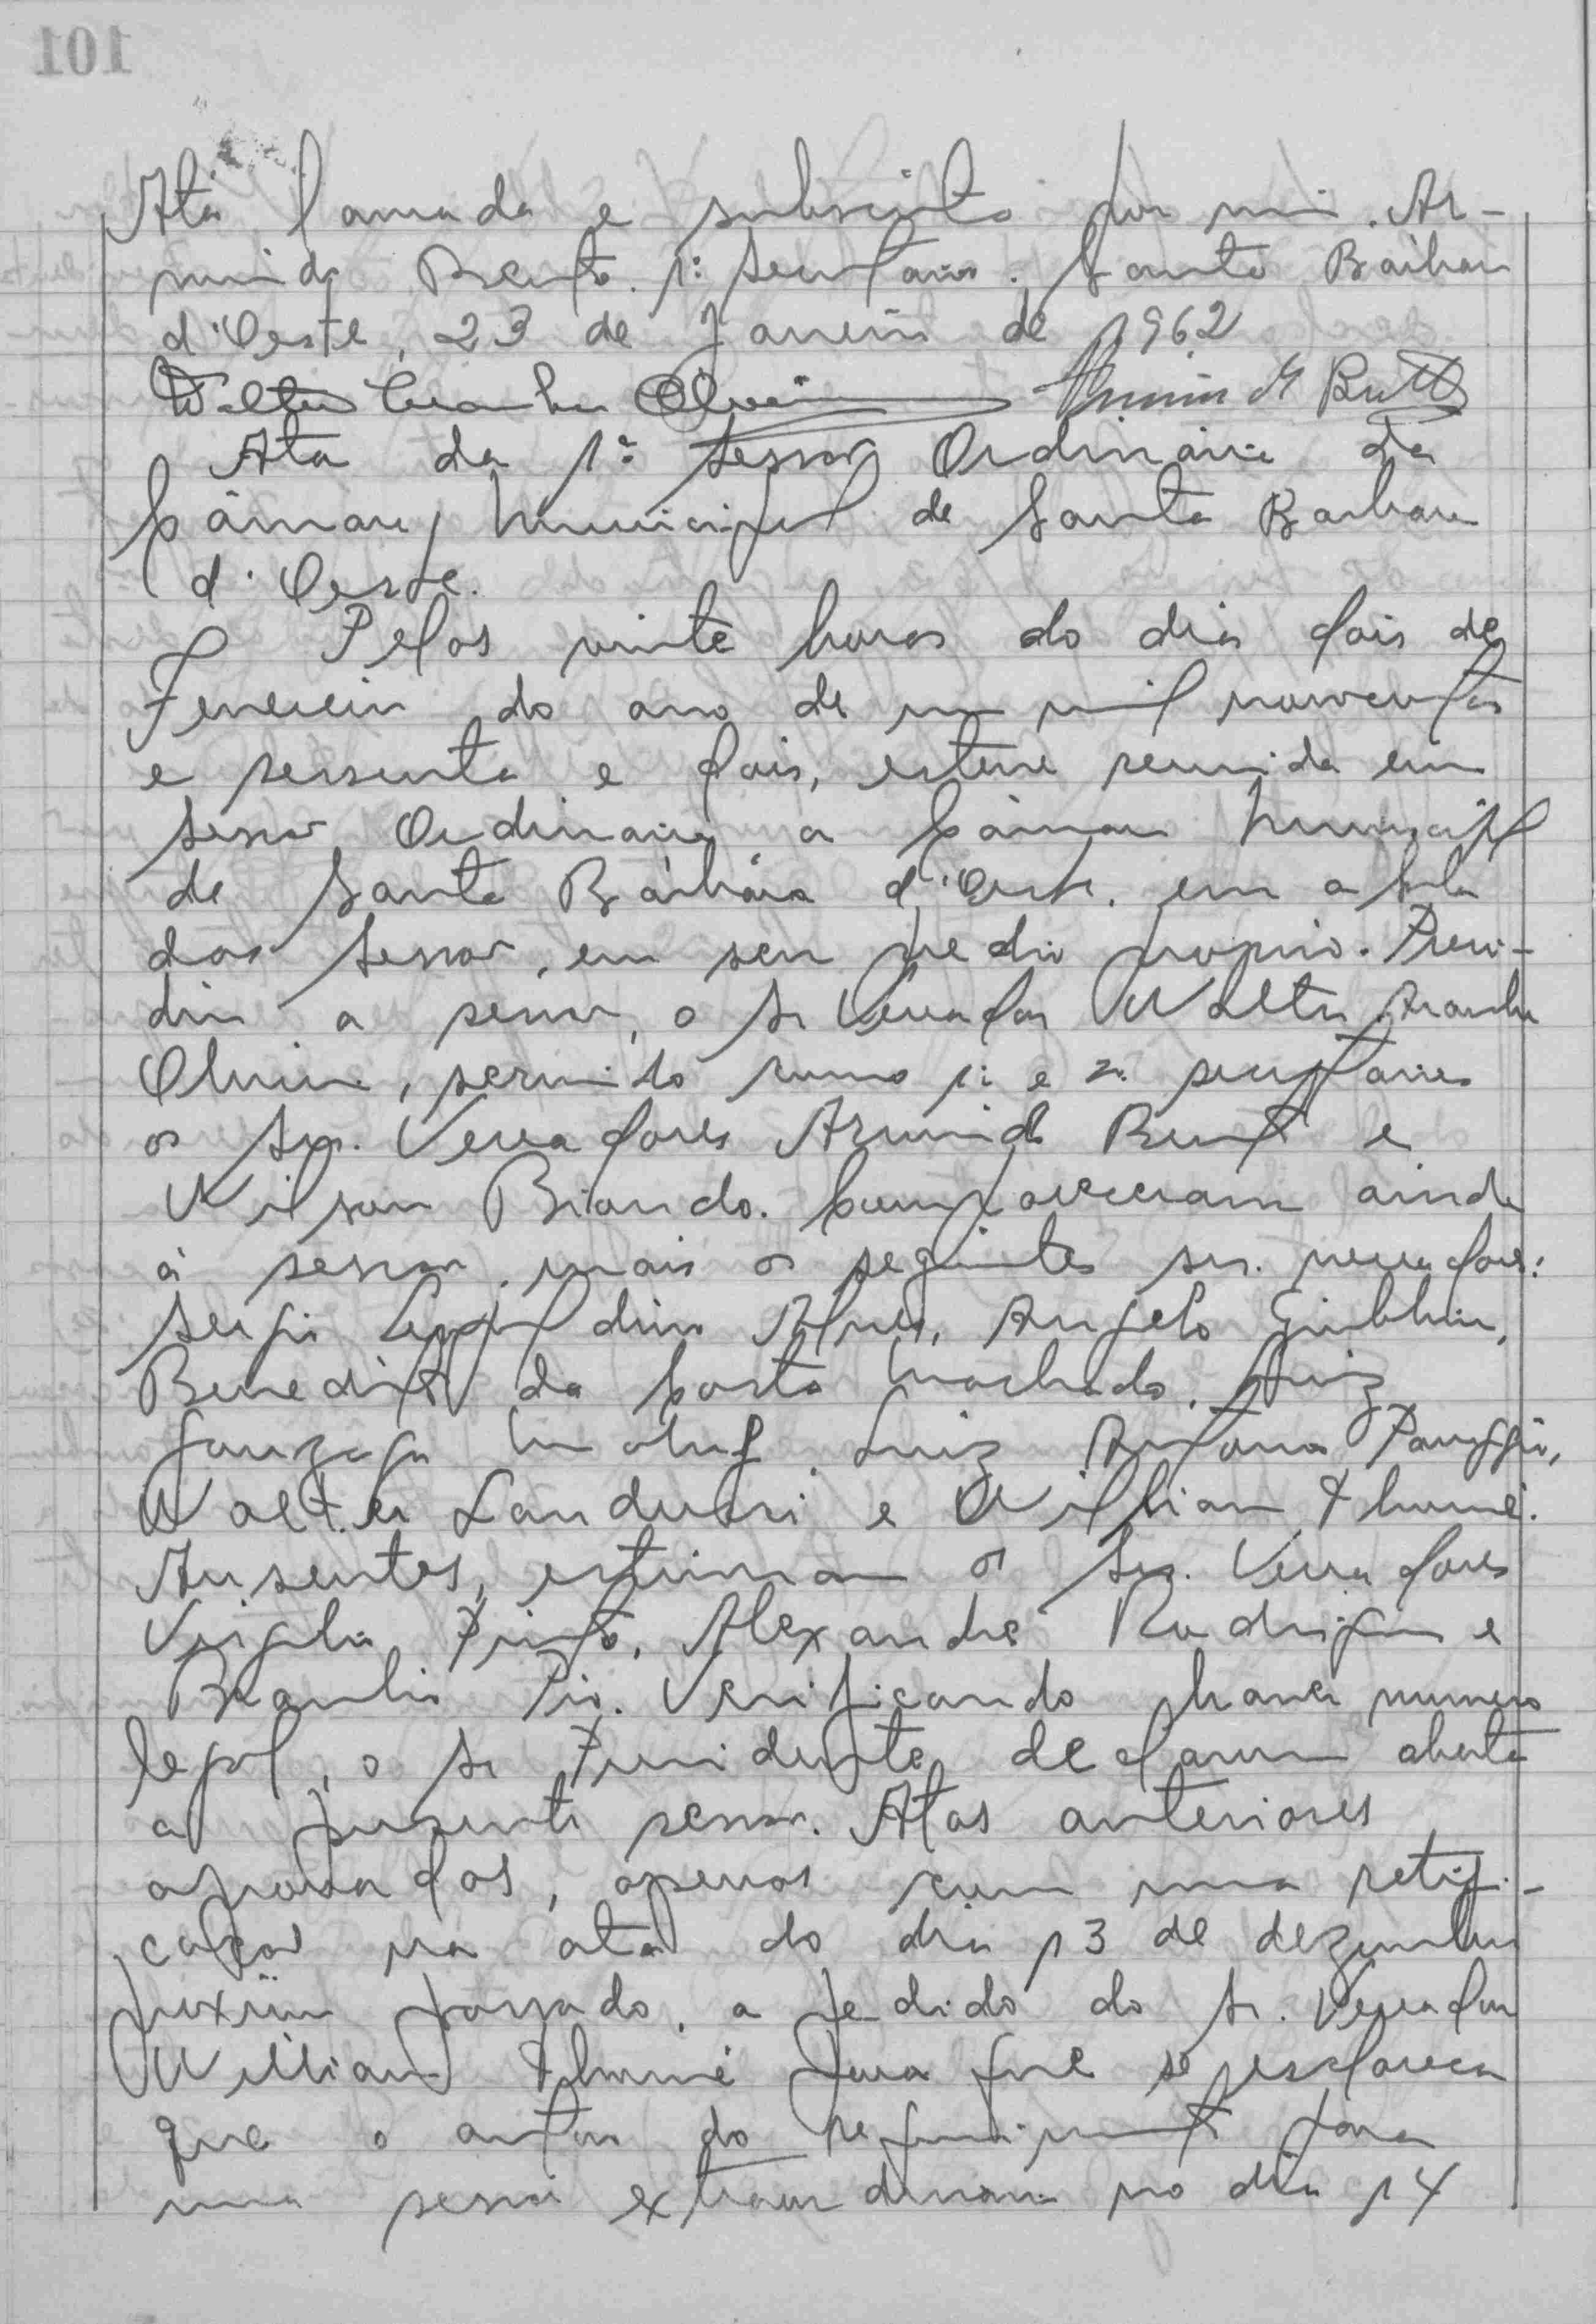 101
Ata lavrada e subscrita por mim. Ar-
mindo Bento. 1º Secretario. Santa Bárbara
d'Oeste, 23 de Janeiro de 1962
Walter
Ata da 1ª Sessão Ordinária da
Câmara Municipal de Santa Barbara
d'Oeste.
Pelas vinte horas do dia dois de
Fevereiro do ano de um mil novecentos
e sessenta e dois, esteve reunida em
sessão Ordinária a Câmara Municipal
de Santa Bárbara d'Oeste, em a Sala
das Sessões, em seu predio proprio. Presi-
diu a sessão, o Sr Vereador Walter Aranha
Oliveira, servindo como 1º e 2º secretarios
os Srs. Vereadores Armindo Bento e
Nilson Biondo. Compareceram ainda
à sessão, mais os seguintes srs. vereadores:
Sergio Leopoldino Alves, Angelo Giubbina,
Benedito da Costa Machado, Luiz
Gonzaga Luiz Antonio
Walter Landucci e Willian Thomé.
Ausentes, estiveram os Srs. Vereadores
Virgilio Pinto, Alexandre Rodrigues e
Braulio Pio. Verificando haver numero
legal, o Sr Presidente declarou aberta
a presente sessão. Atas anteriores
aprovadas, apenas com uma retifi-
cação na ata do dia 13 de dezembro
proximo passado, a pedido do Sr. Vereador
Willian Thomé para que se esclareça
que o autor do requerimento para
uma sessão extraordinaria no dia 14